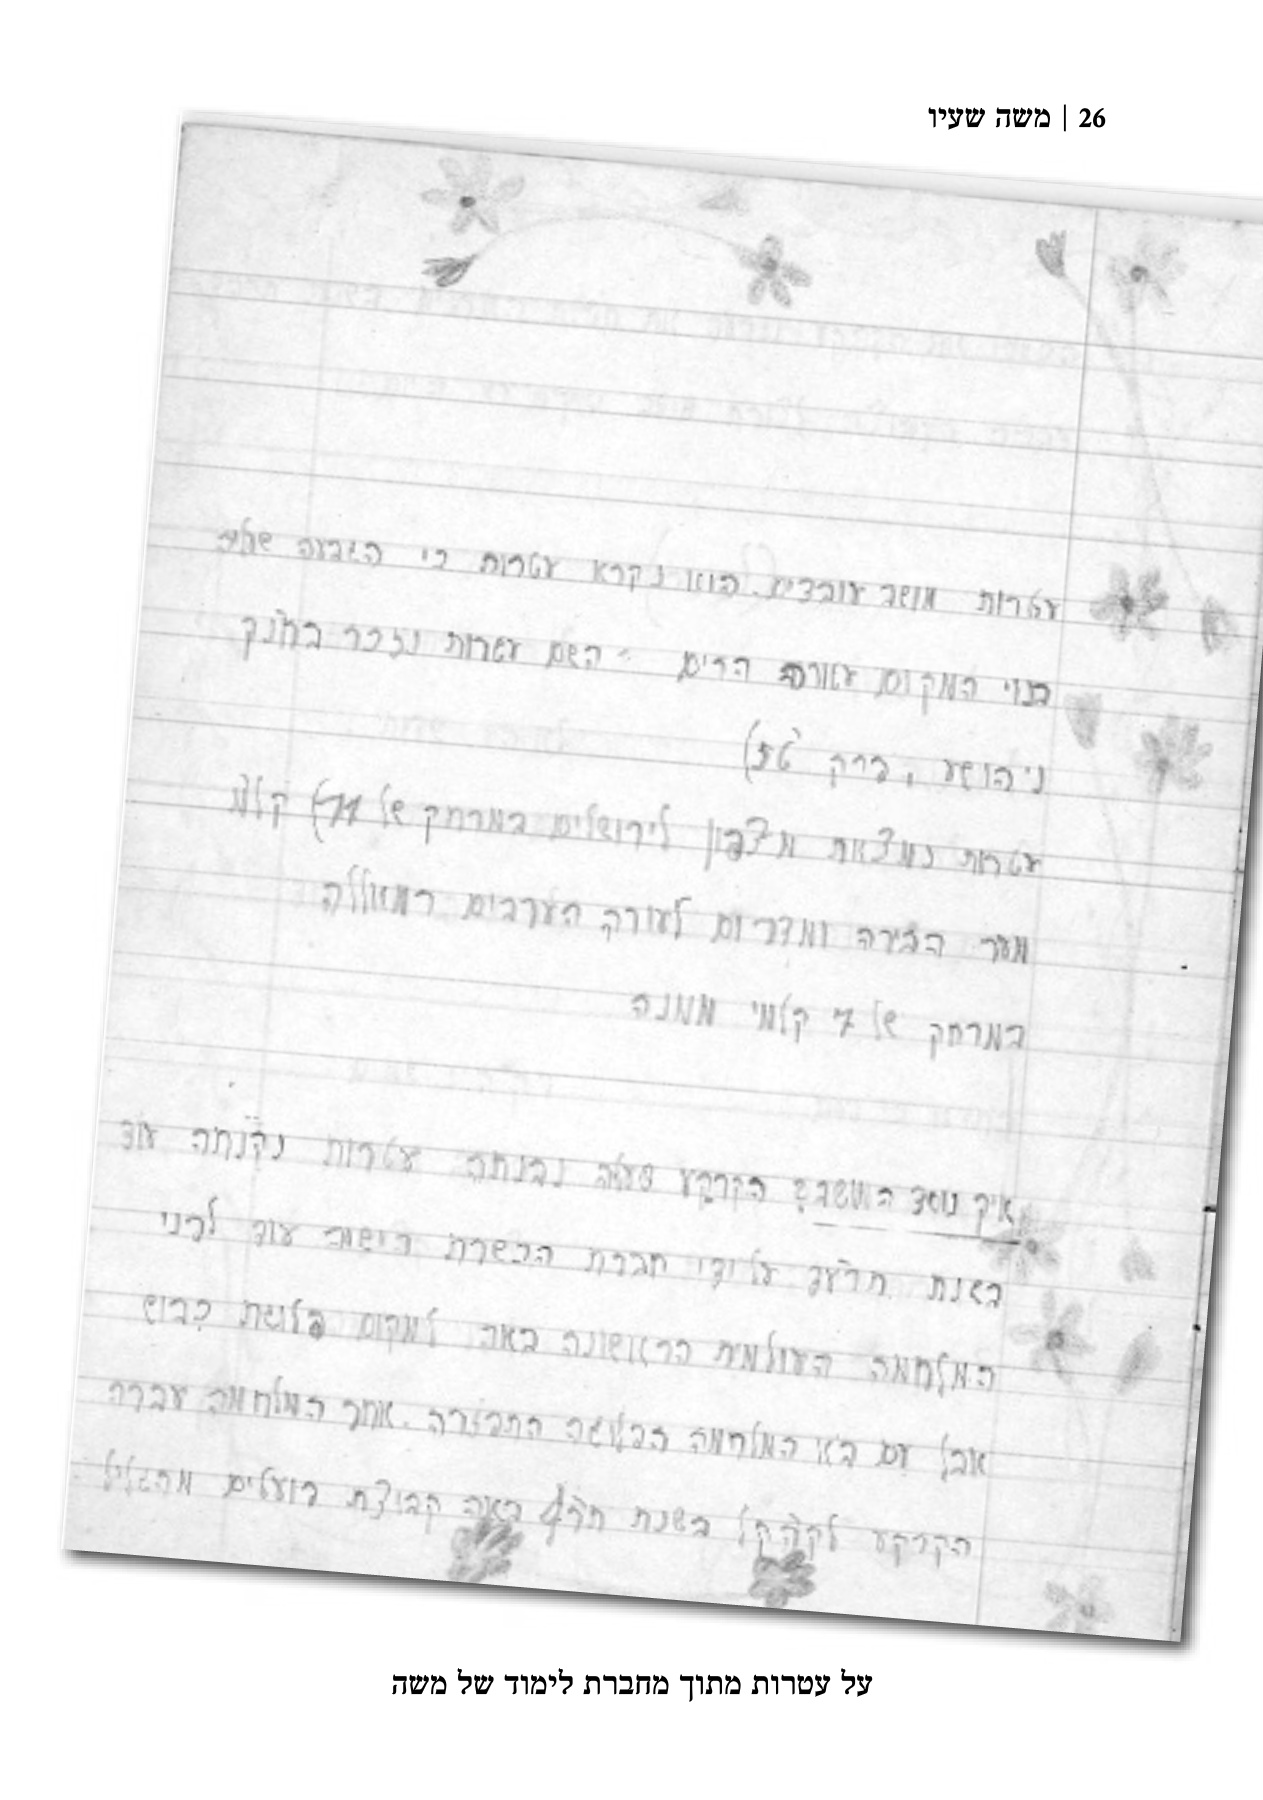 26 | משה שעיו
עטרות מושב עובדים. הוא נקרא עטרות כי הגבעה שעליה
בנוי המקום עטורת הרים - השם עטרות נזכר בתנך
יהושע, פרק טז)
עטרות נמצאת מצפון לירושלים במרחק של קלמ
מער הבירה ומדרום לעורק הערבים רמאללה
במרחק של 7 קלמי ממנה
איך נוסד המשב? הקרקע שעליה נבנתה עטרות נקנתה עוד
בשנת תרעד על ידי חברת הכשרת הישוב עוד לפני
המלחמה העולמית הראשונה באה למקום פלוגת כבוש
אבל עם בא המלחמה הפלוגה התפזרה. אחר המלחמה עברה
הקרקע לקהקל בשנת באה קבוצת פועלים מהגליל
על עטרות מתוך מחברת לימוד של משה